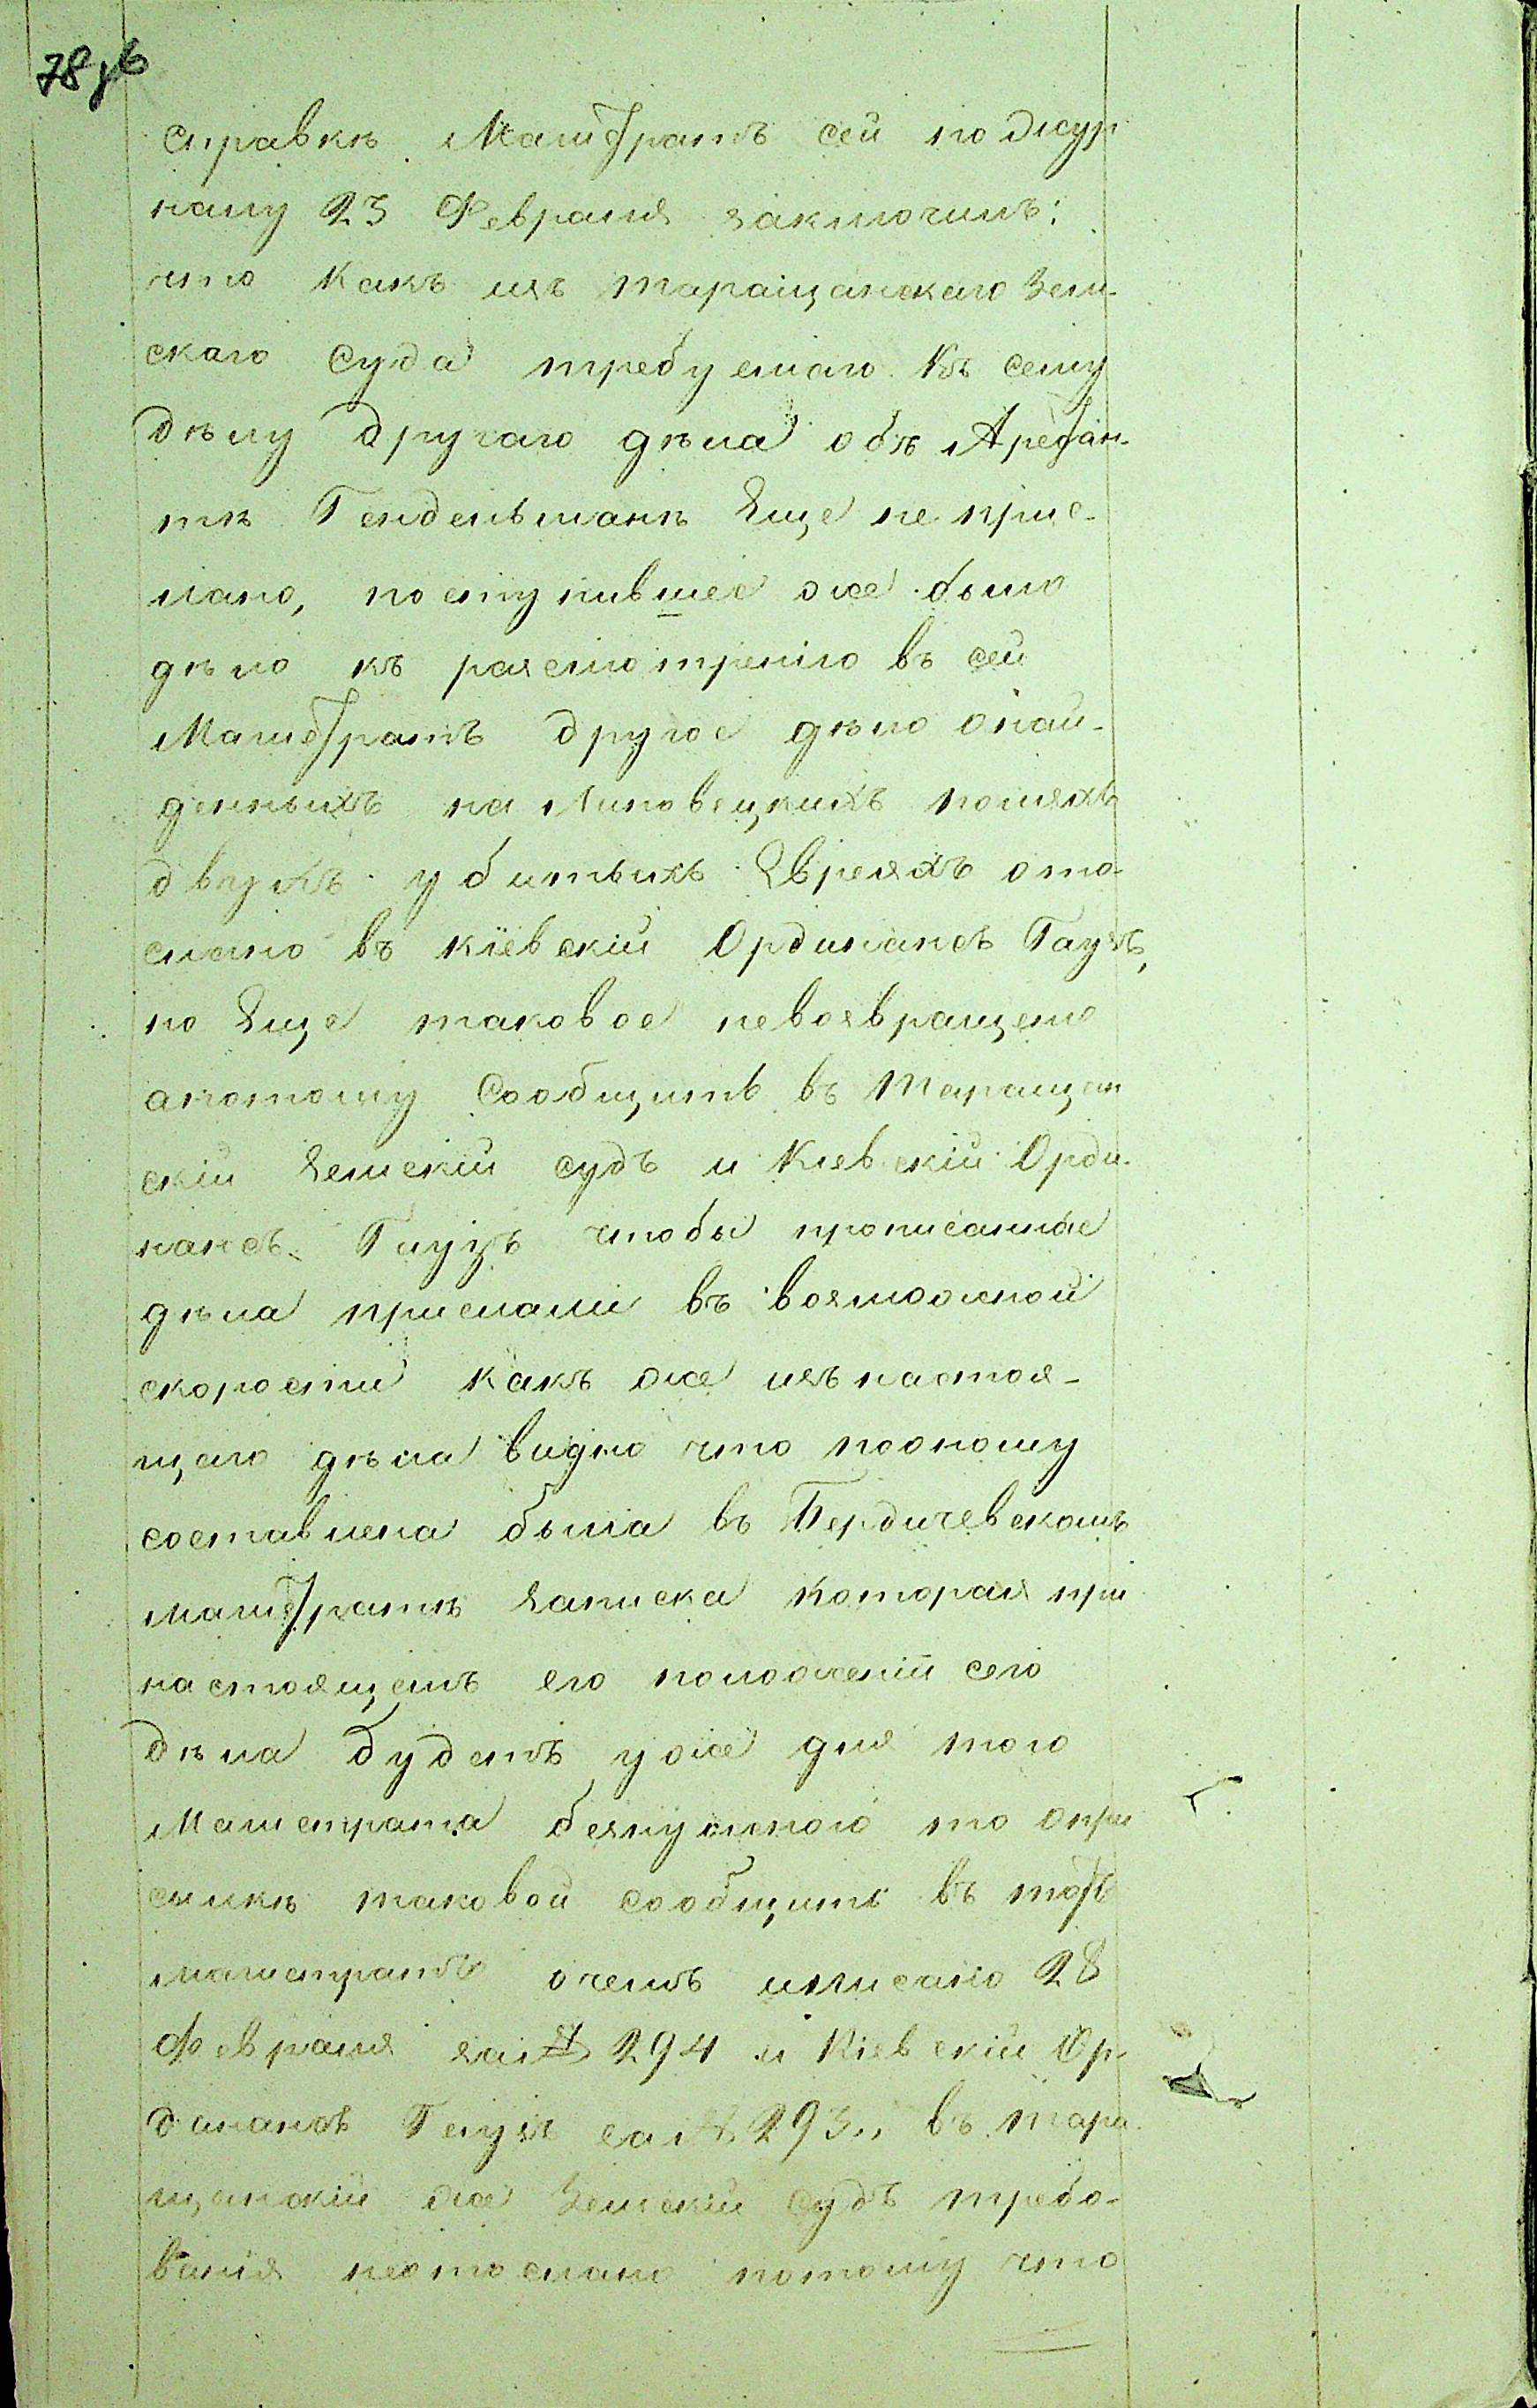 78 зв
справкѣ Магистратъ сей по жур
налу 23 Февраля заключилъ:
что какъ изъ Таращанскаго Зем-
скаго Суда требуемаго къ сему
дѣлу другаго дѣла объ Арестан-
тѣ Гендельманѣ Еще не прис-
лано, поступившее же было
дѣло къ разсмотренію въ сей
Магистратъ другое дѣло онай-
денныхъ на Липовецкихъ поляхъ
двухъ убитыхъ Евреяхъ ото-
слано въ Кіевскій Ордонансъ Гаузъ,
но Еще таковое невозвращено
апотому Сообщить въ Таращан
скій Земскій судъ и Кіевскій Орди-
нансъ Гаузъ чтобы прописанные
дѣла прислали въ возможной
скорости какъ же изъ настоя-
щаго дѣла видно что пооному
составлена была въ Бердичевскомъ
магистратѣ записка которая при
настоящемъ его положеніи сего
дѣла будетъ уже для того
Магистрата безнужною то о при
сылкѣ таковой сообщить въ тотъ
магистратъ очемъ и писано 28
Февраля за № 294 и Кіевскій Ор-
динансъ Гаузъ за № 293., въ Тара-
щанскій же Земскій судъ требо-
ванія неотослано потому что